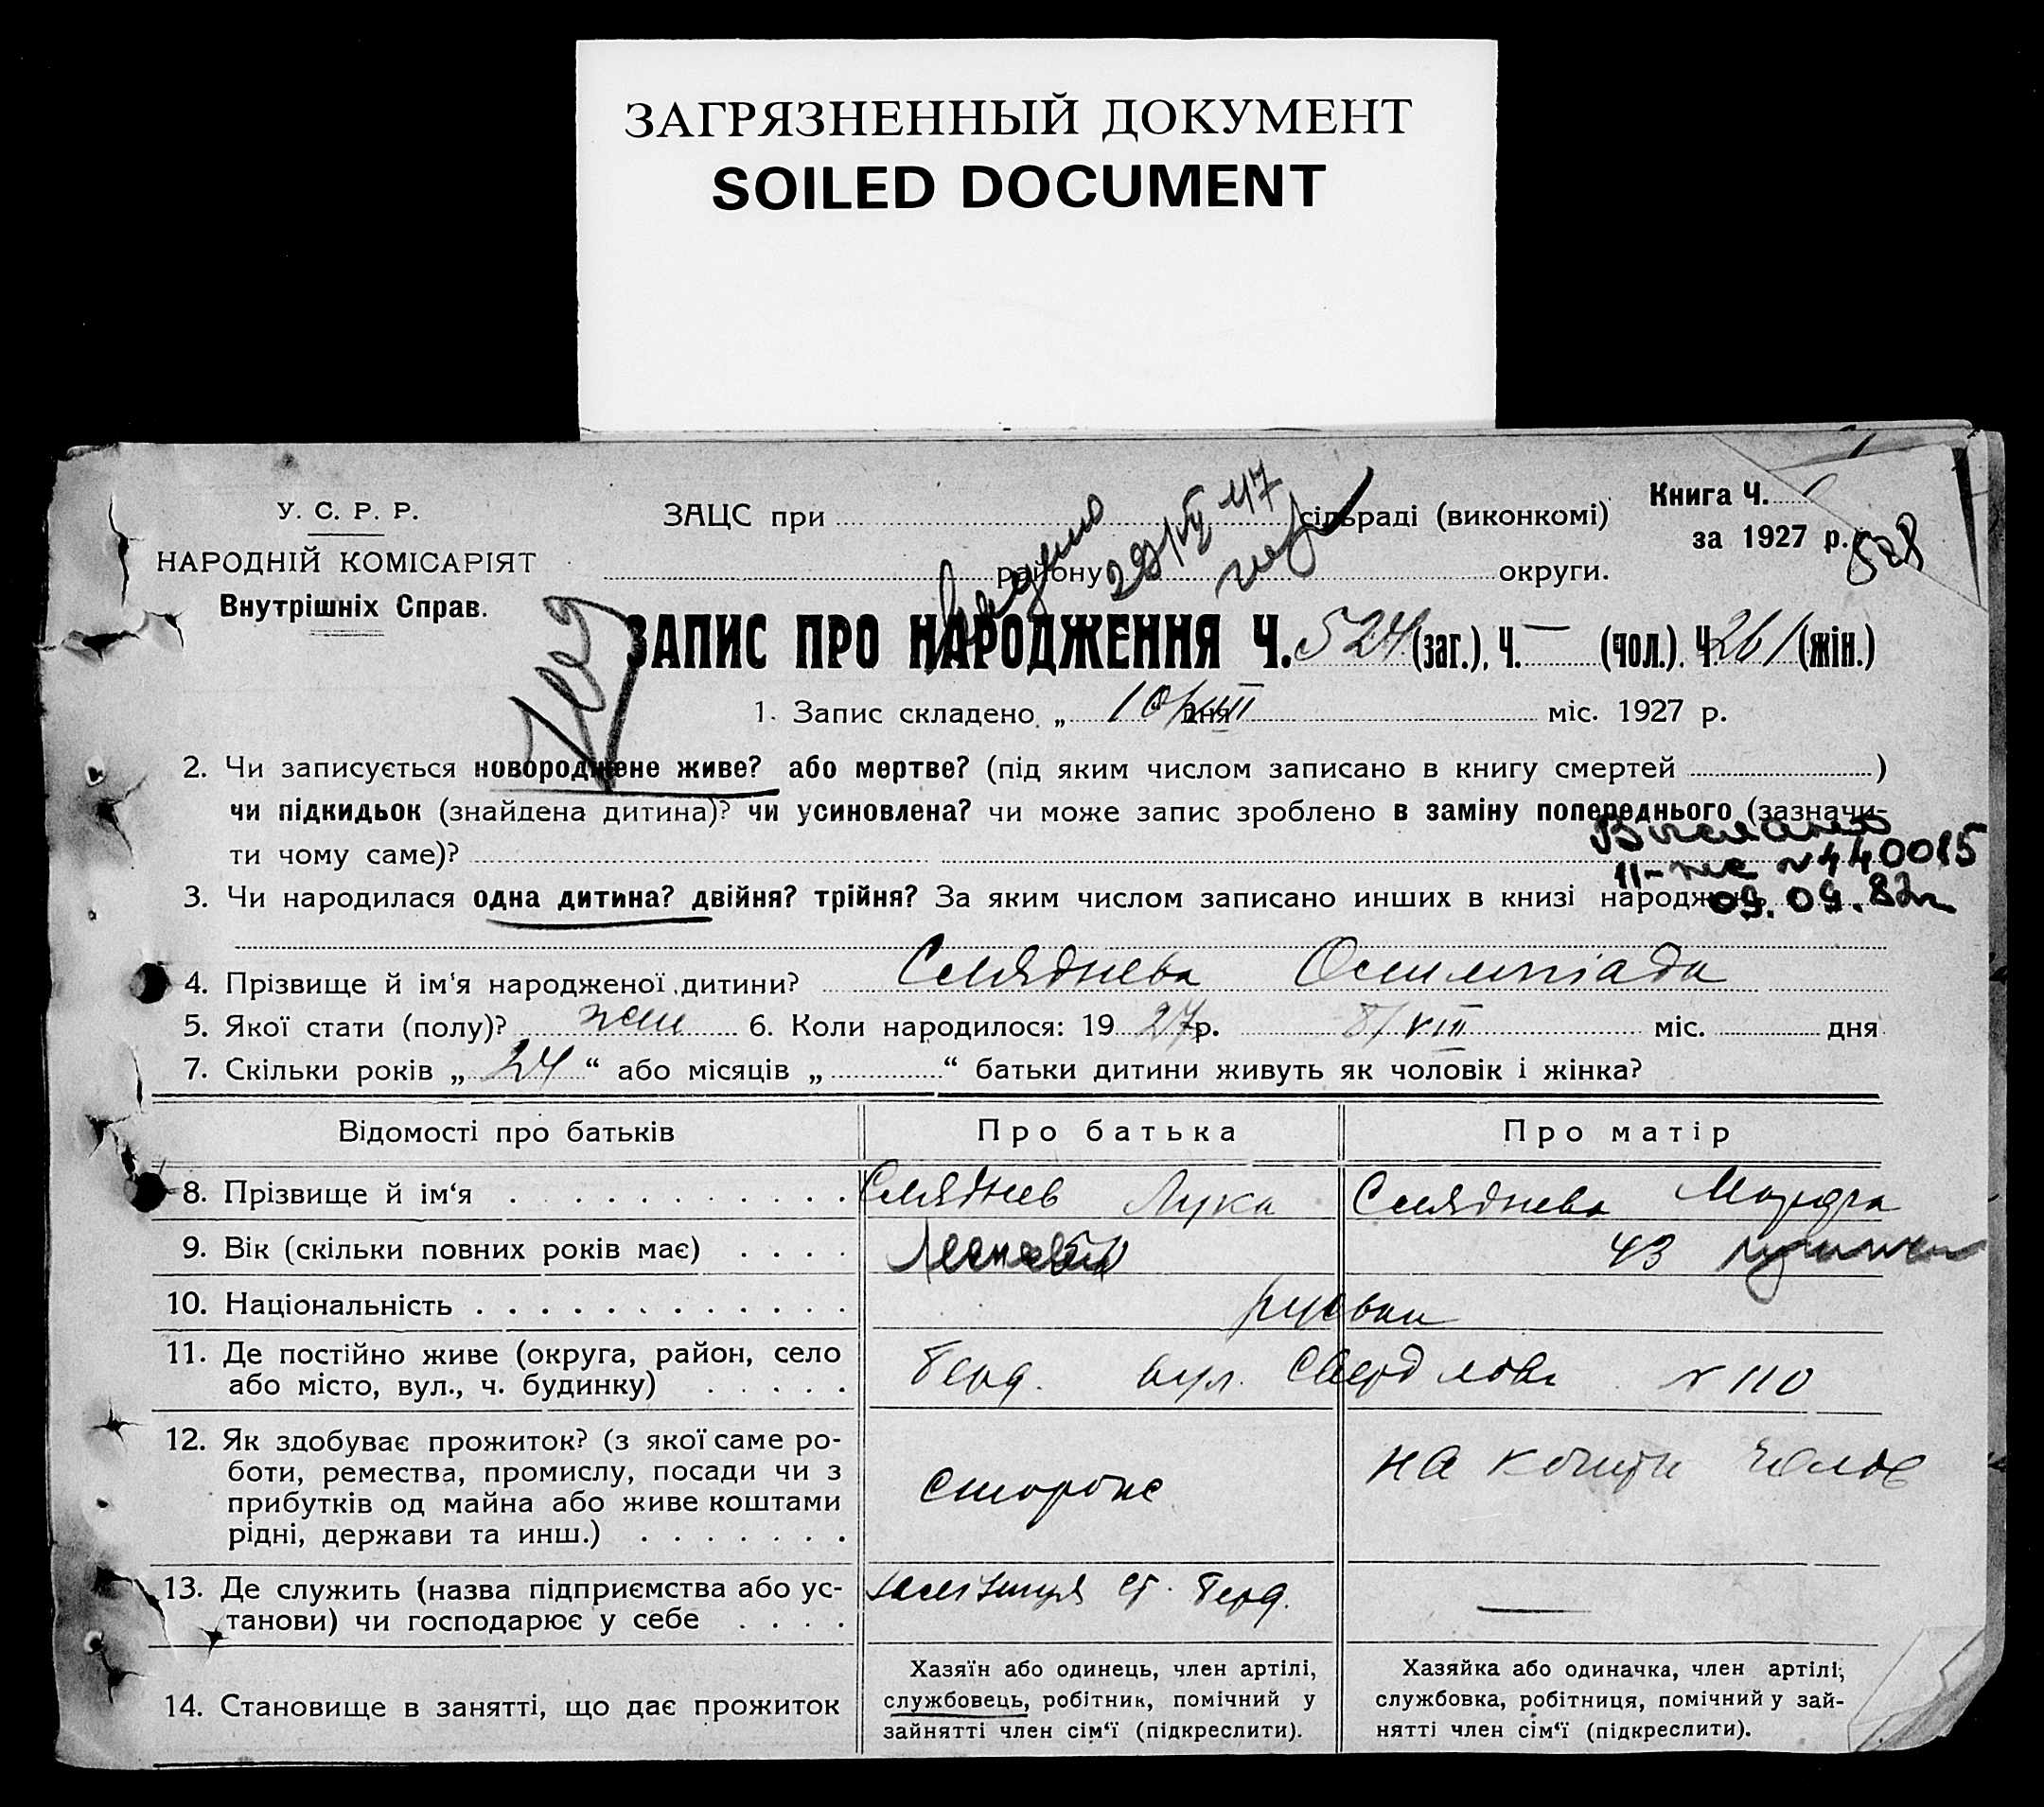 ЗАГРЯЗНЕННЫЙ ДОКУМЕНТ
SOILED DOCUMENT
У. С. Р. Р.
НАРОДНІЙ КОМІСАРІЯТ
Внутрішніх Справ.
ЗАЦС при сільраді (виконкомі)
району округи.
Книга Ч.
за 1927 р.
528
ЗАПИС ПРО НАРОДЖЕННЯ Ч. 524 (заг.), Ч. — (чол.). Ч. 261 (жін.)
1. Запис складено „ 10/VIII дня міс. 1927 р.
2. Чи записується новороджене живе? або мертве? (під яким числом записано в книгу смертей )
чи підкидьок (знайдена дитина)? чи усиновлена? чи може запис зроблено в заміну попереднього (зазначи-
ти чому саме)?
№ 440015
09.09.82г
3. Чи народилася одна дитина? двійня? трійня? За яким числом записано инших в книзі народжень
4. Прізвище й ім‘я народженої дитини? Сляднева Олимпіада
5. Якої стати (полу)? жен 6. Коли народилося: 19 27 р. 8/VIII міс. дня
7. Скільки років „ 24 “ або місяців „ “ батьки дитини живуть як чоловік і жінка?
Відомості про батьків
Про батька
Про матір
8. Прізвище й ім‘я Сляднев Лука Сляднева
9. Вік (скільки повних років має) 43
10. Національність
11. Де постійно живе (округа, район, село
або місто, вул., ч. будинку)
Берд. вул. Свердлова № 110
12. Як здобуває прожиток? (з якої саме ро-
боти, ремества, промислу, посади чи з
прибутків од майна або живе коштами
рідні, держави та инш.)
сторож
на кошти чолов
13. Де служить (назва підприємства або ус-
танови) чи господарює у себе
ст. Берд.
—
14. Становище в занятті, що дає прожиток
Хазяїн або одинець, член артілі,
службовець, робітник, помічний у
зайнятті член сім‘ї (підкреслити).
Хазяйка або одиначка, член артілі,
службовка, робітниця, помічний у зай-
нятті член сім‘ї (підкреслити).